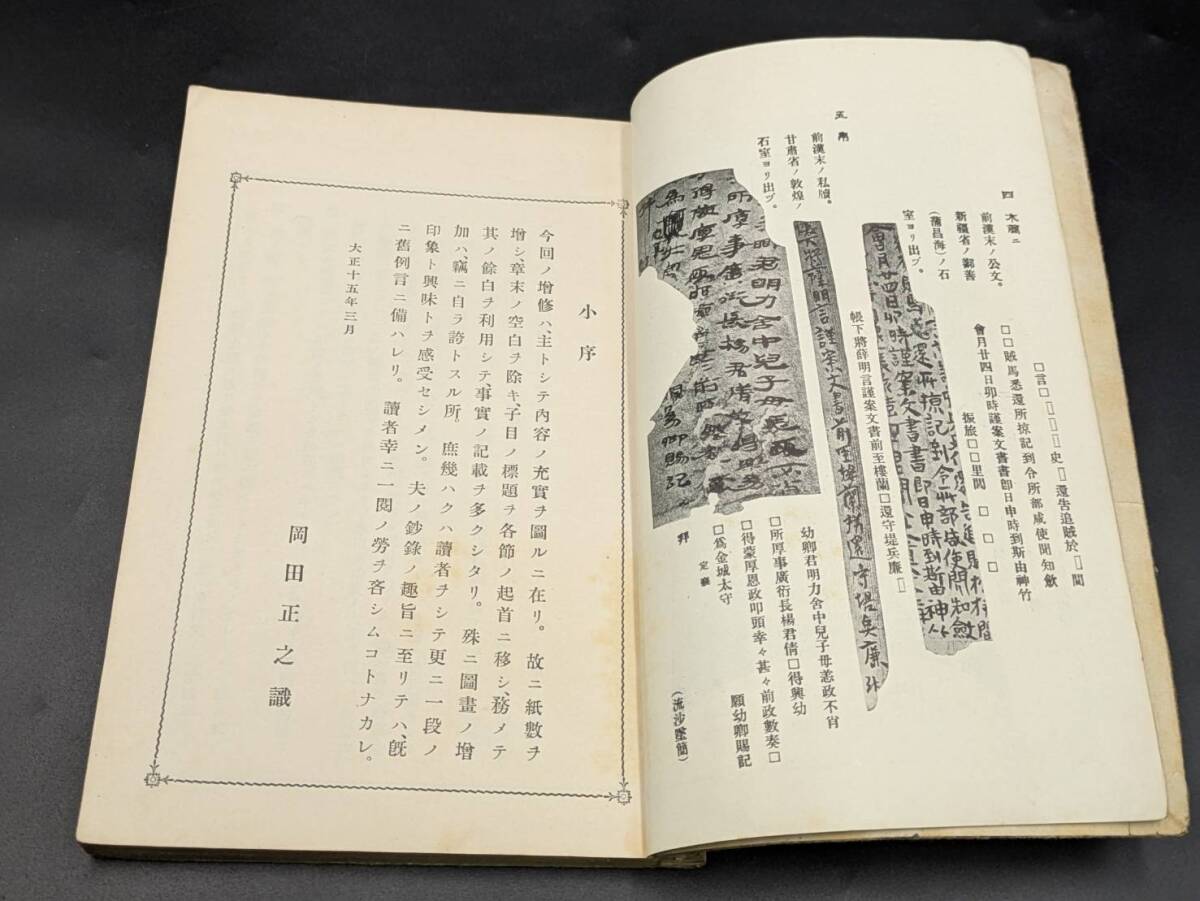 四 木牘二
前漢末ノ公文。
新疆省ノ鄯善
(蒲昌海)ノ石
室ヨリ出ヅ。
□言□▯▯▯▯史▯還告追賊於▯間
□□賊馬悉還所掠記到令所部咸使聞知斂
會月廿四日卯時謹案文書書卽日申時到斯由神竹
振旅□□里閭 □ □ □
帳下將薛明言謹案文書前至樓蘭□還守堤兵廉▯
五 帛
前漢末ノ私牘。
甘肅省ノ敦煌ノ
石室ヨリ出ヅ。
幼卿君明力舍中兒子毋恙政不肖
□所厚事廣衍長楊君倩□得興幼
□得蒙厚恩政叩頭幸々甚々前政數奏□
□爲金城太守 願幼卿賜記
拜
(流沙墜簡)
小序
今回ノ增修ハ、主トシテ內容ノ充實ヲ圖ルニ在リ。故ニ紙數ヲ
增シ、章末ノ空白ヲ除キ、子目ノ標題ヲ各節ノ起首ニ移シ、務メテ
其ノ餘白ヲ利用シテ、事實ノ記載ヲ多クシタリ。殊ニ圖畫ノ增
加ハ、竊ニ自ラ誇トスル所。庶幾ハクハ讀者ヲシテ更ニ一段ノ
印象ト興味トヲ感受セシメン。夫ノ鈔錄ノ趣旨ニ至リテハ、旣
ニ舊例言ニ備ハレリ。讀者幸ニ一閱ノ勞ヲ吝シムコトナカレ。
大正十五年三月
岡田正之識